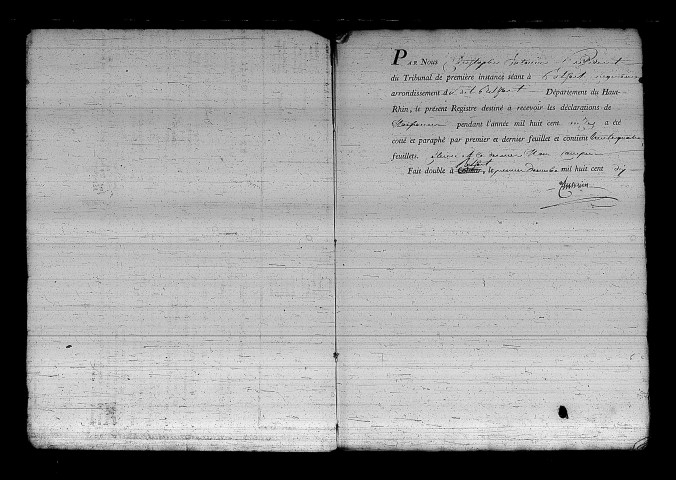 PAR NOUS Christophe Antonin Président
du Tribunal de première instance séant à Belfort
arrondissement dudit Belfort Département du Haut-
Rhin, le présent Registre destiné à recevoir les déclarations de
Naissances pendant l'année mil huit cent onze a été
coté et paraphé par premier et dernier feuillet et contient
feuillets.
Fait double à Belfort, le premier mil huit cent dix